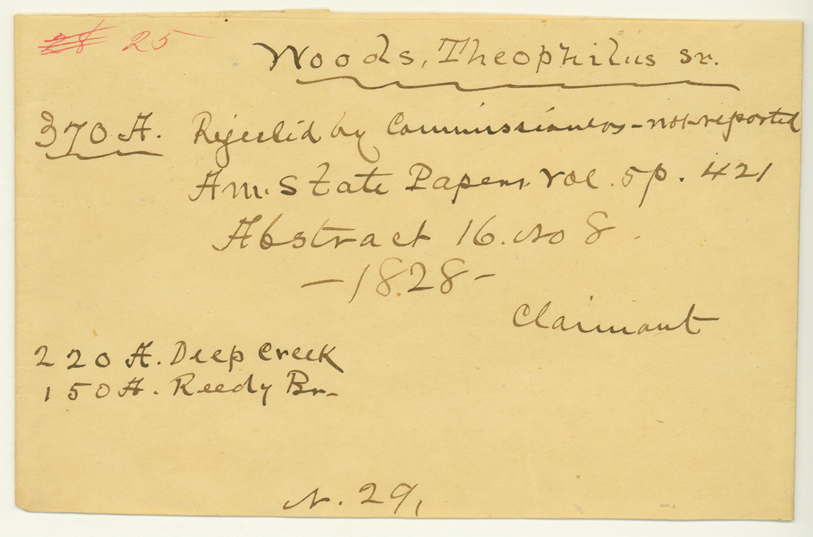 28 25
Woods, Theophilus sr.
370 A. Rejected by Commissioners - not reported
Am. State Papers. Vol. 5 p. 421
Abstract 16. No 8.
- 1828 -
Claimant
220 A. Deep Creek
150 A. Reedy Br.
N. 29,